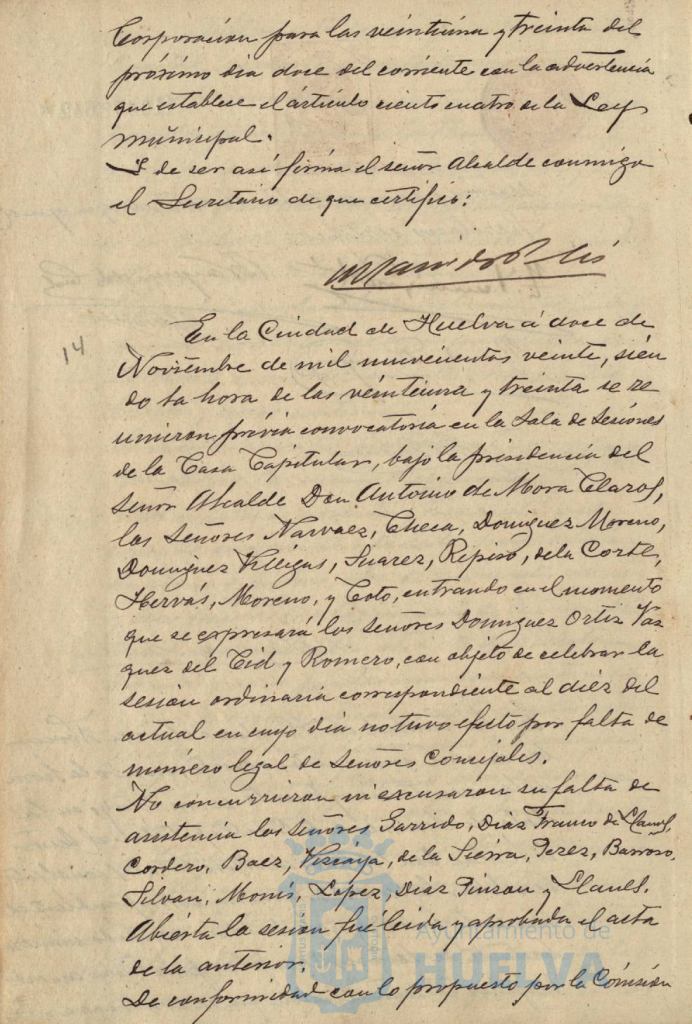 Corporación para las veintiuna y treinta del
próximo dia doce del corriente con la advertencia
que establece el artículo ciento cuatro de la Ley
Municipal.
Y de ser así firma el señor Alcalde conmigo
el Secretario de que certifico:
14
En la Ciudad de Huelva á doce de
Noviembre de mil nuevecientos veinte, sien
do la hora de las veintiuna y treinta se re
unieron prévia convocatoria en la Sala de Sesiones
de la Casa Capitular, bajo la presidencia del
Señor Alcalde Don Antonio de Mora Claros,
los Señores Narvaez, Checa, Dominguez Moreno,
Dominguez Villegas, Suarez, Repiso, de la Corte,
Hervás, Moreno, y Coto, entrando en el momento
que se expresará los señores Dominguez Ortiz Vaz
quez del Cid y Romero, con objeto de celebrar la
sesión ordinaria correspondiente al diez del
actual en cuyo dia no tuvo efecto por falta de
número legal de Señores Concejales.
No concurrieron ni escusaron su falta de
asistencia los señores Garrido, Diaz Franco de Llanos,
Cordero, Baez, Vizcaya, de la Sierra, Perez, Barroso,
Silvan, Monís, López, Diaz Pinzon y Llanes.
Abierta la sesión fué leida y aprobada el acta
de la anterior.
De conformidad con lo propuesto por la Comisión
Ayuntamiento de
HUELVA